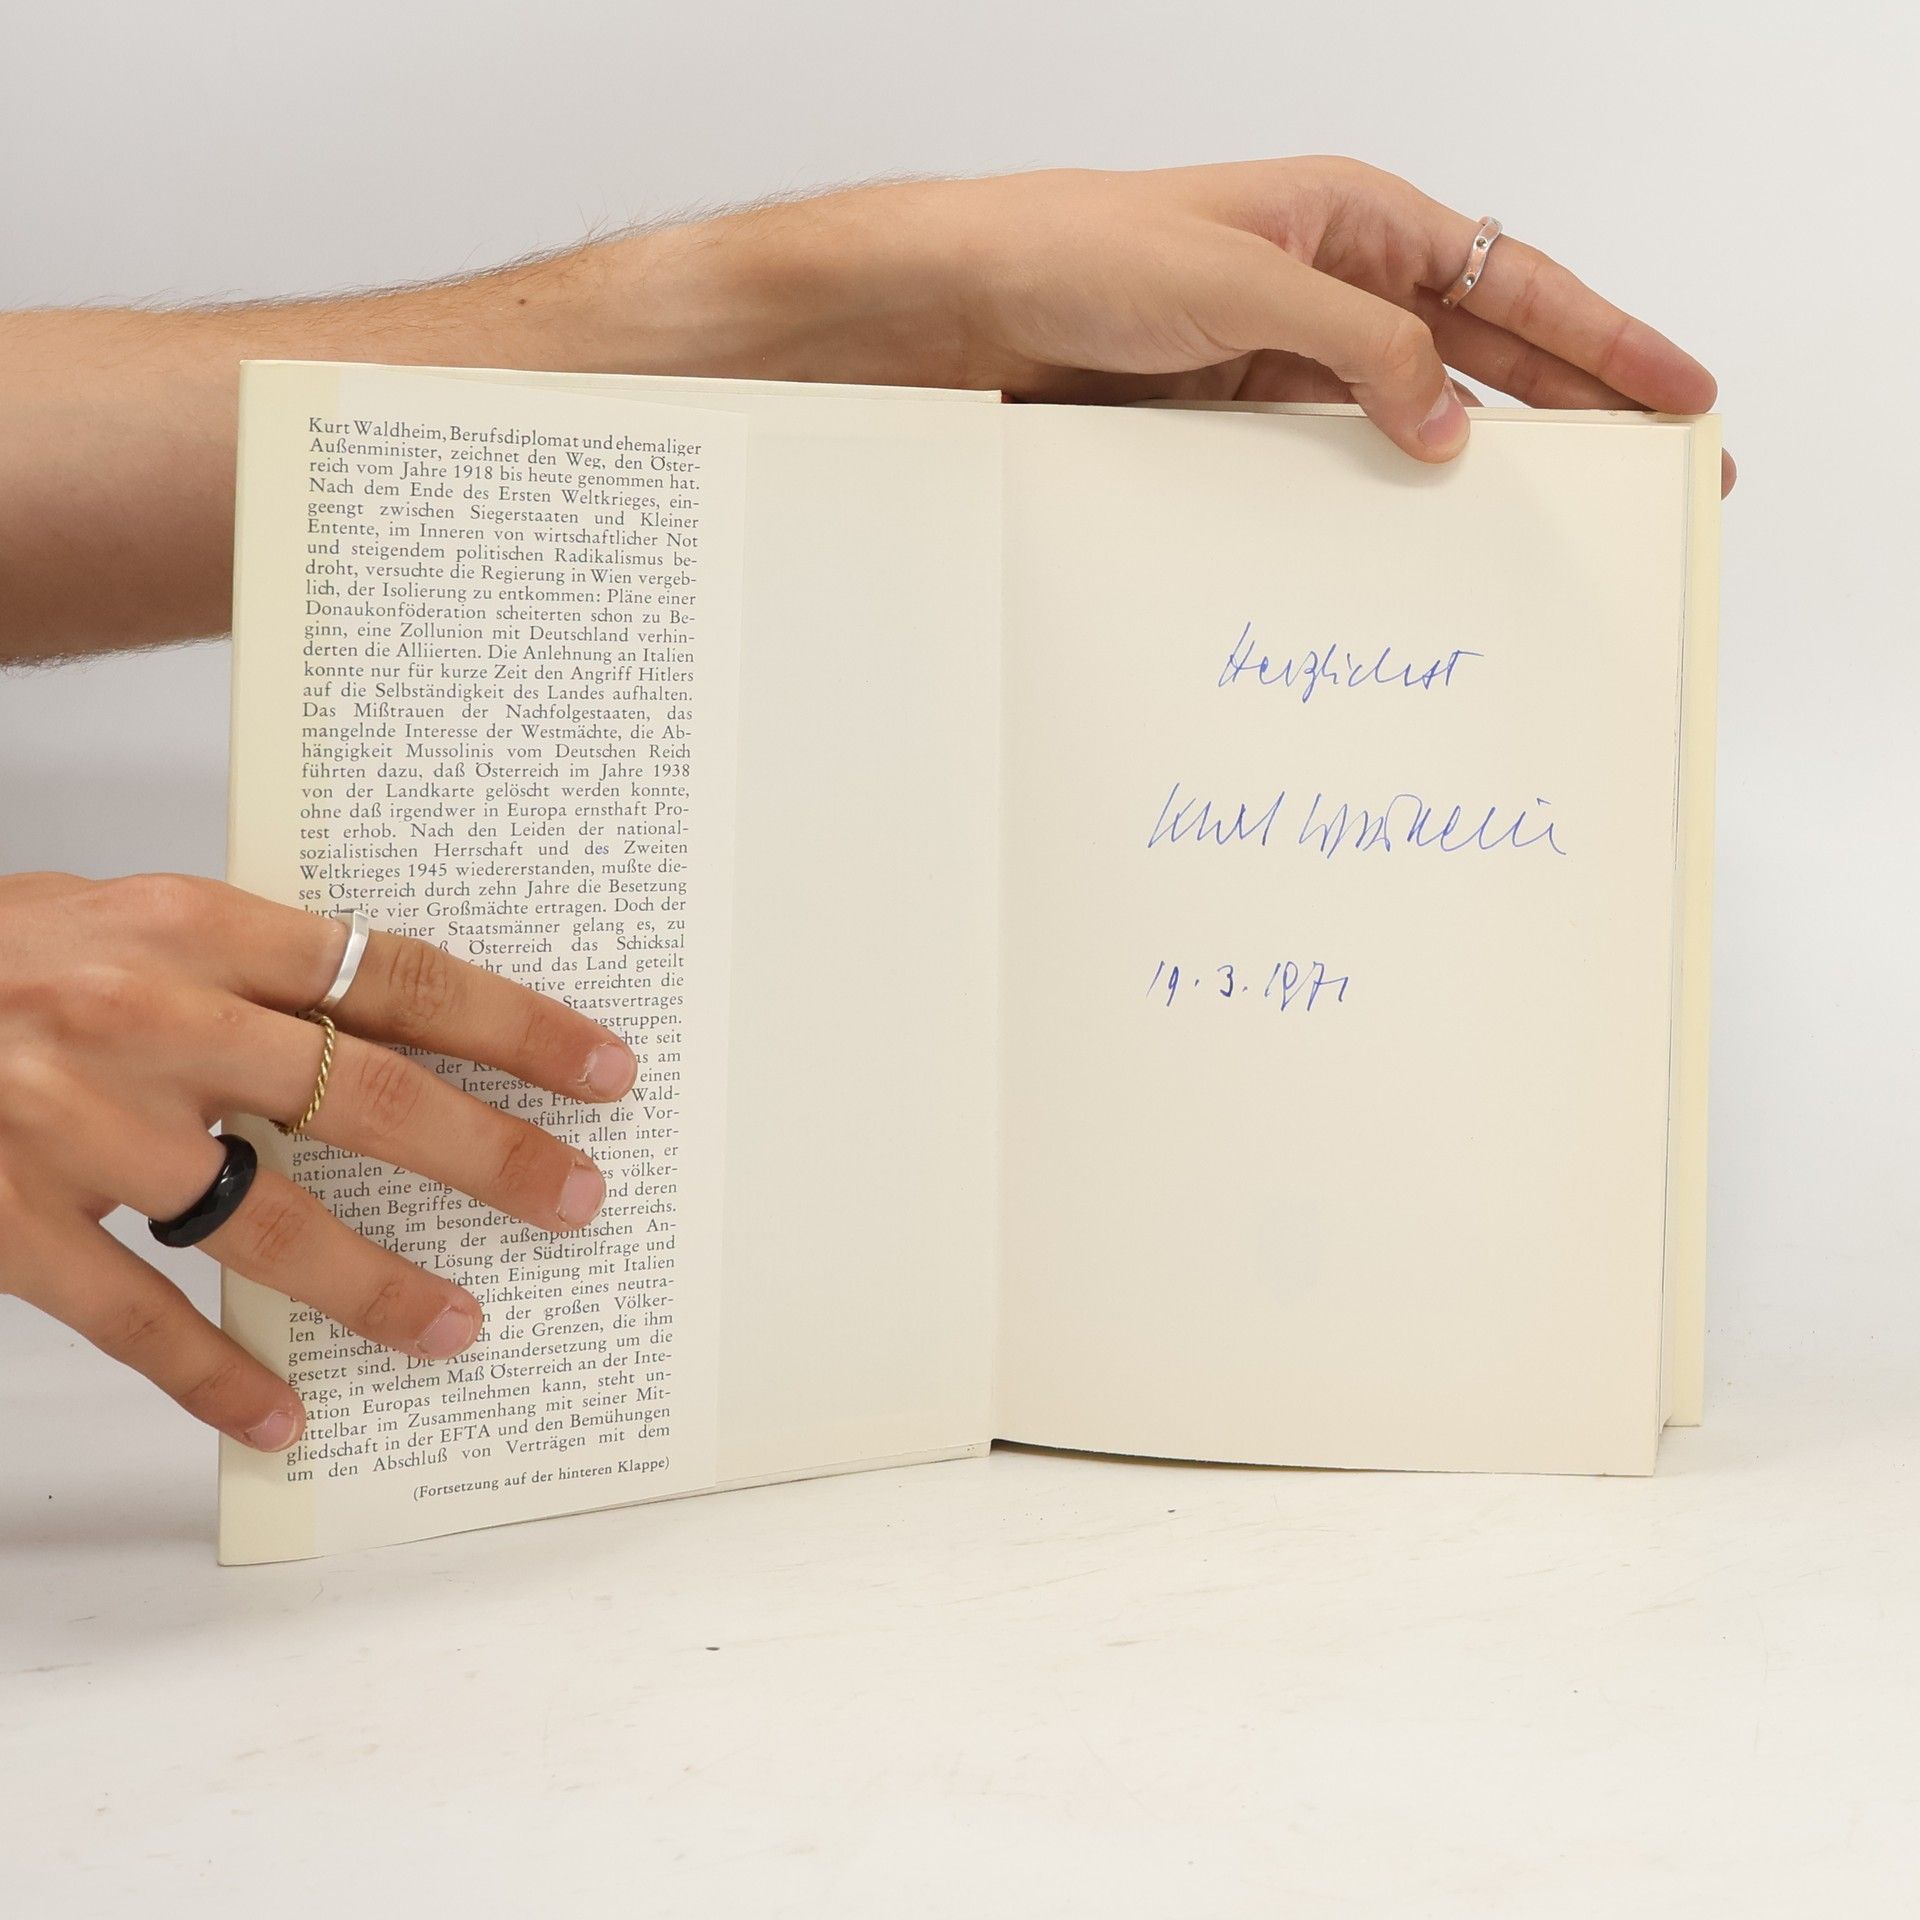 Kurt Waldheim, Berufsdiplomat und ehemaliger
Außenminister, zeichnet den Weg, den Öster-
reich vom Jahre 1918 bis heute genommen hat.
Nach dem Ende des Ersten Weltkrieges, ein-
geengt zwischen Siegerstaaten und Kleiner
Entente, im Inneren von wirtschaftlicher Not
und steigendem politischen Radikalismus be-
droht, versuchte die Regierung in Wien vergeb-
lich, der Isolierung zu entkommen: Pläne einer
Donaukonföderation scheiterten schon zu Be-
ginn, eine Zollunion mit Deutschland verhin-
derten die Alliierten. Die Anlehnung an Italien
konnte nur für kurze Zeit den Angriff Hitlers
auf die Selbständigkeit des Landes aufhalten.
Das Mißtrauen der Nachfolgestaaten, das
mangelnde Interesse der Westmächte, die Ab-
hängigkeit Mussolinis vom Deutschen Reich
führten dazu, daß Österreich im Jahre 1938
von der Landkarte gelöscht werden konnte,
ohne daß irgendwer in Europa ernsthaft Pro-
test erhob. Nach den Leiden der national-
sozialistischen Herrschaft und des Zweiten
Weltkrieges 1945 wiedererstanden, mußte die-
ses Österreich durch zehn Jahre die Besetzung
durch die vier Großmächte ertragen. Doch der
seiner Staatsmänner gelang es, zu
Österreich das Schicksal
und das Land geteilt
erreichten die
Staatsvertrages
seit
am
der einen
und des Wald-
ausführlich die Vor-
mit allen inter-
nationalen Aktionen, er
auch eine völker-
Begriffes und deren
im Österreichs.
der außenpolitischen An-
Lösung der Südtirolfrage und
Einigung mit Italien
eines neutra-
len der großen Völker-
die Grenzen, die ihm
gesetzt sind. Die Auseinandersetzung um die
Frage, in welchem Maß Österreich an der Inte-
gration Europas teilnehmen kann, steht un-
mittelbar im Zusammenhang mit seiner Mit-
gliedschaft in der EFTA und den Bemühungen
um den Abschluß von Verträgen mit dem
(Fortsetzung auf der hinteren Klappe)
Herzlichst
Kurt Waldheim
19.3.1971